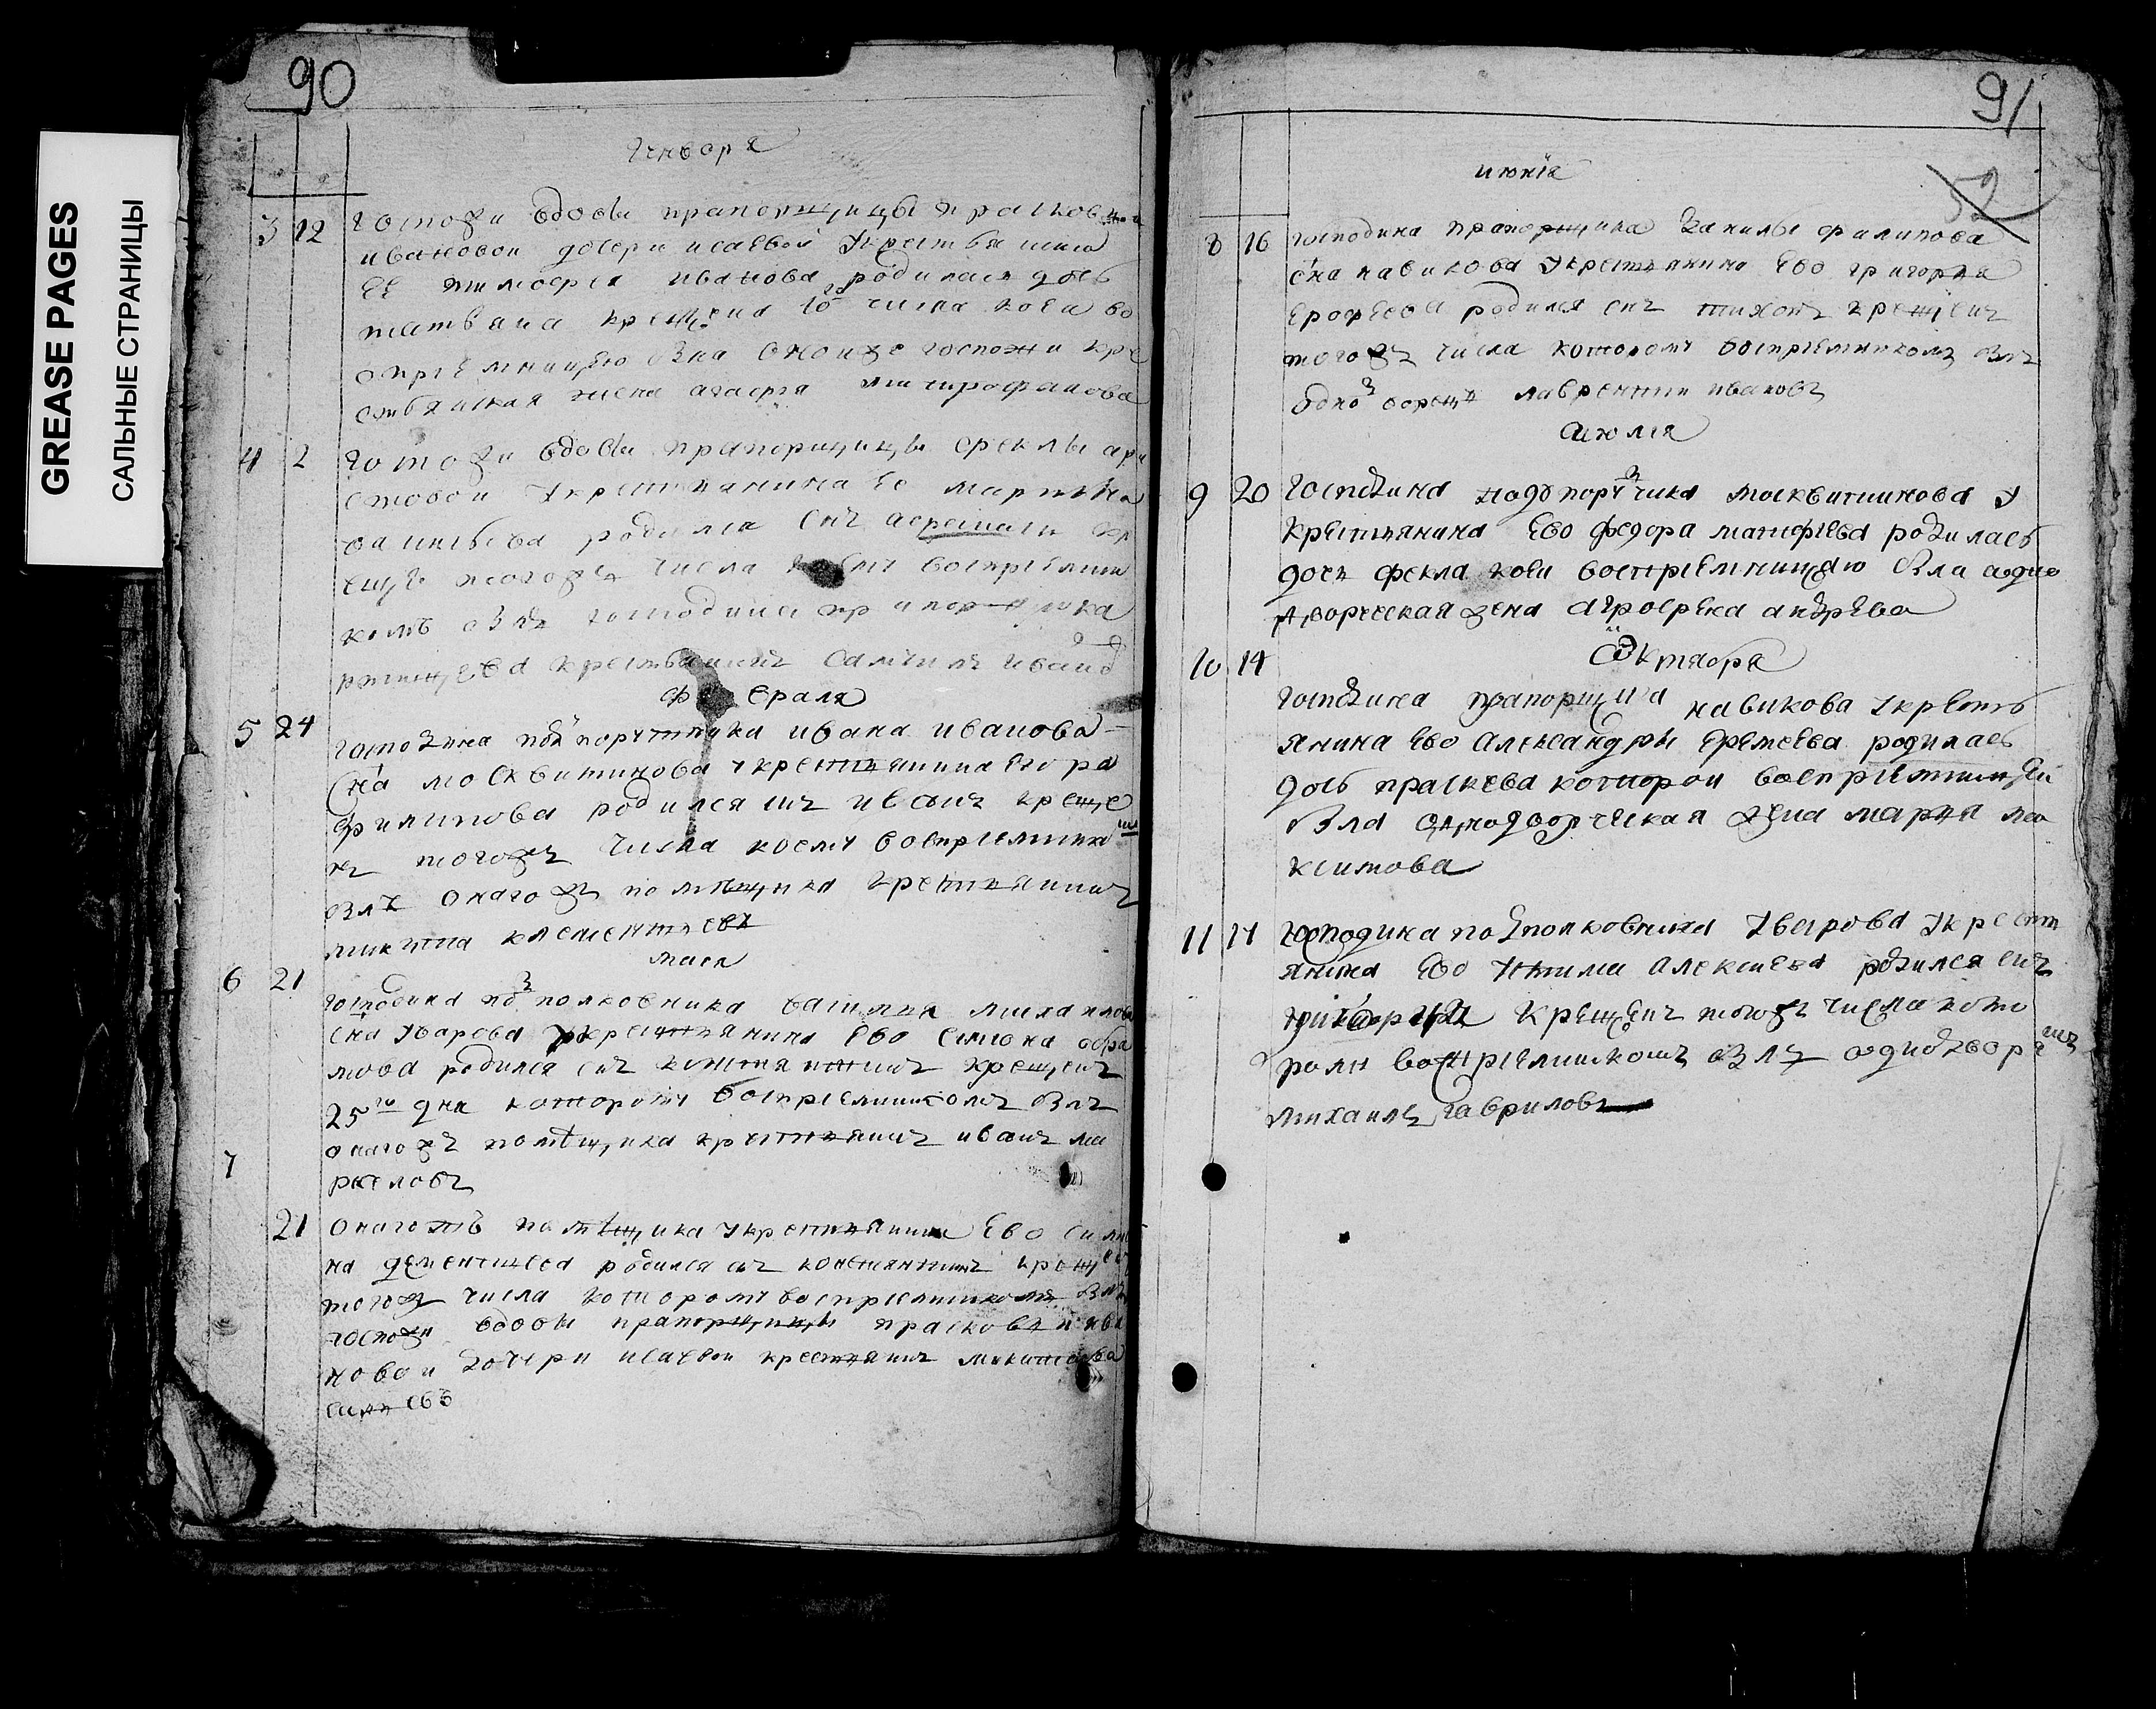 GREASE PAGES
САЛЬНЫЕ СТРАНИЦЫ
90
Генваря
3 12 госпожи вдовы прапорщицы прасков
ивановой дочери исаевой укрестьянина
ее тимофея иванова родилась дочь
татьяна крещена 10го числа коея во
сприемницею была оноиже госпожи кре
стьянская жена агафья митрофанова
4 2 госпожи вдовы прапорщицы феклы
укрестьянина ее мартына
васильева родился снъ кр
ещъ тогожъ числа коему восприемни
комъ былъ господина прапорщика
крестьянинъ самоилъ ивано
февраля
5 24 господина подпорутчика ивана иванова
сна москвитинова укрестьянина его
филипова родился снъ иванъ креще
нъ тогожъ числа коему восприемнико
былъ онагожъ помещика крестьянинъ
никита клементьевъ
маея
6 21 господина подполковника василия михаилова
сна уварова укрестьянина ево симиона абра
мова родился снъ констянтинъ крещенъ
25го дня которому восприемникомъ былъ
онагожъ помещика крестьянинъ иванъ ма
ркеловъ
7
21 онагожъ помещика укрестьянина ево симио
на дементьева родился снъ констянтинъ крещенъ
тогожъ числа которому восприемникомъ былъ
госпожи вдовы прапорщицы прасковьи ива
новой дочери исаевой крестьянинъ никита ва
сильевъ
91
52
июния
8 16 господина прапорщика данилы филипова
сна навикова укрестьянина ево григорья
ерофеева родился снъ тихонъ крещенъ
тогожъ числа которому восприемникомъ былъ
однодворецъ лаврентии ивановъ
июлия
9 20 господина подпорутчика москвитинова у
крестьянина ево федора матфеева родилась
дочь фекла коеи восприемницею была одно
дворческая жена агрофена андрева
октября
10 14
господина прапорщика навикова укресть
янина ево александры еремеева родилась
дочь праскева которои восприемницеи
была однодворческая жена марья ма
ксимова
11 14 господина подполковника уварова укрест
янина ево алексиева родился снъ
григореи крещенъ тогожъ числа кото
рому восприемникомъ былъ однодворецъ
михаилъ гавриловъ